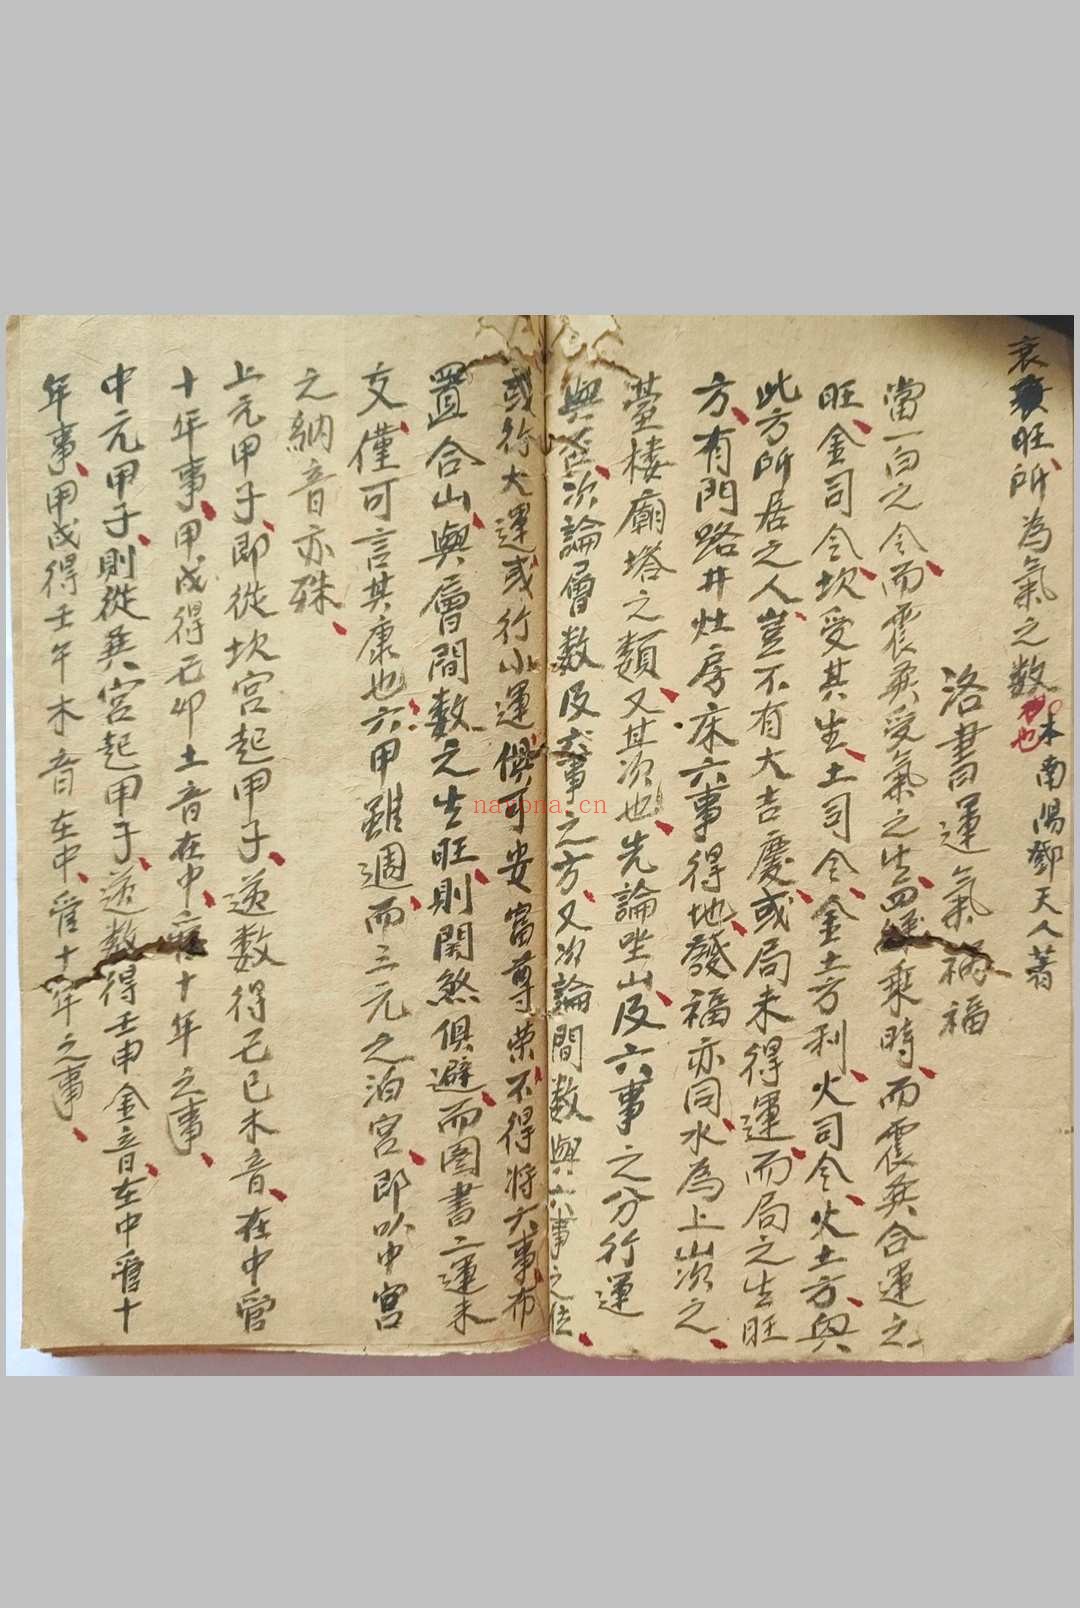 衰旺所為氣之数 也 木 南陽鄧天人著
洛書運氣禍福
當一白之令而震巽受氣之生四綠乘時而震巽合運之
旺金司令坎受其生土司令金土方利火司令火土方與
此方所居之人豈不有大吉慶或局未得運而局之生旺
方有門路井灶房床六事得地發福亦同水為上山次之
臺楼廟塔之類又其次也先論坐山及六事之分行運
與否次論層数及六事之方又次論間数與六事之位
或行大運或行小運俱可安富尊荣不得将六事布
置合山與層間數之生旺則関煞俱避而圖書二運未
交僅可言其康也六甲雖週而三元之泊宫即以中宫
之納音亦殊
上元甲子即從坎宫起甲子逆數得己巳木音在中管
十年事甲戌得己卯土音在中管十年之事
中元甲子則從巽宮起甲子逆数得壬申金音在中管十
年事甲戌得壬午木音在中管十年之事
navona.cn